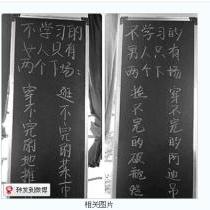 不学习的
女人只有
两个下场:
穿不完的地摊
逛不完的菜市
不学习的
男人只有
两个下场
不完的破瓶
穿不完的阿迪
转发到微博
相关图片